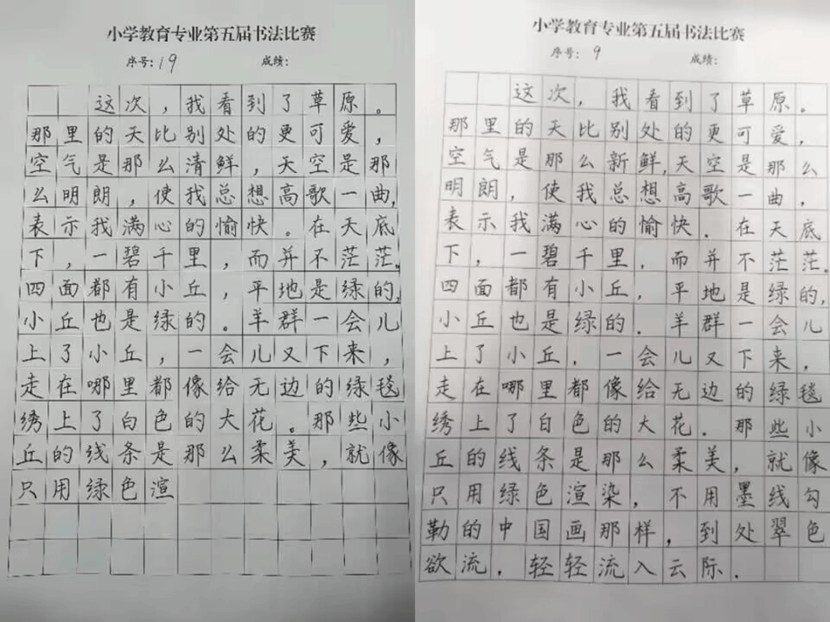 小学教育专业第五届书法比赛
序号：19 成绩：
这次，我看到了草原。
那里的天比别处的更可爱，
空气是那么清鲜，天空是那
么明朗，使我总想高歌一曲，
表示我满心的愉快。在天底
下，一碧千里，而并不茫茫。
四面都有小丘，平地是绿的，
小丘也是绿的。羊群一会儿
上了小丘，一会儿又下来，
走在哪里都像给无边的绿毯
绣上了白色的大花。那些小
丘的线条是那么柔美，就像
只用绿色渲
小学教育专业第五届书法比赛
序号：9 成绩：
这次，我看到了草原。
那里的天比别处的更可爱，
空气是那么新鲜，天空是那么
明朗，使我总想高歌一曲，
表示我满心的愉快．在天底
下，一碧千里，而并不茫茫．
四面都有小丘，平地是绿的，
小丘也是绿的．羊群一会儿
上了小丘，一会儿又下来，
走在哪里都像给无边的绿毯
绣上了白色的大花．那些小
丘的线条是那么柔美，就像
只用绿色渲染，不用墨线勾
勒的中国画那样，到处翠色
欲流，轻轻流入云际．